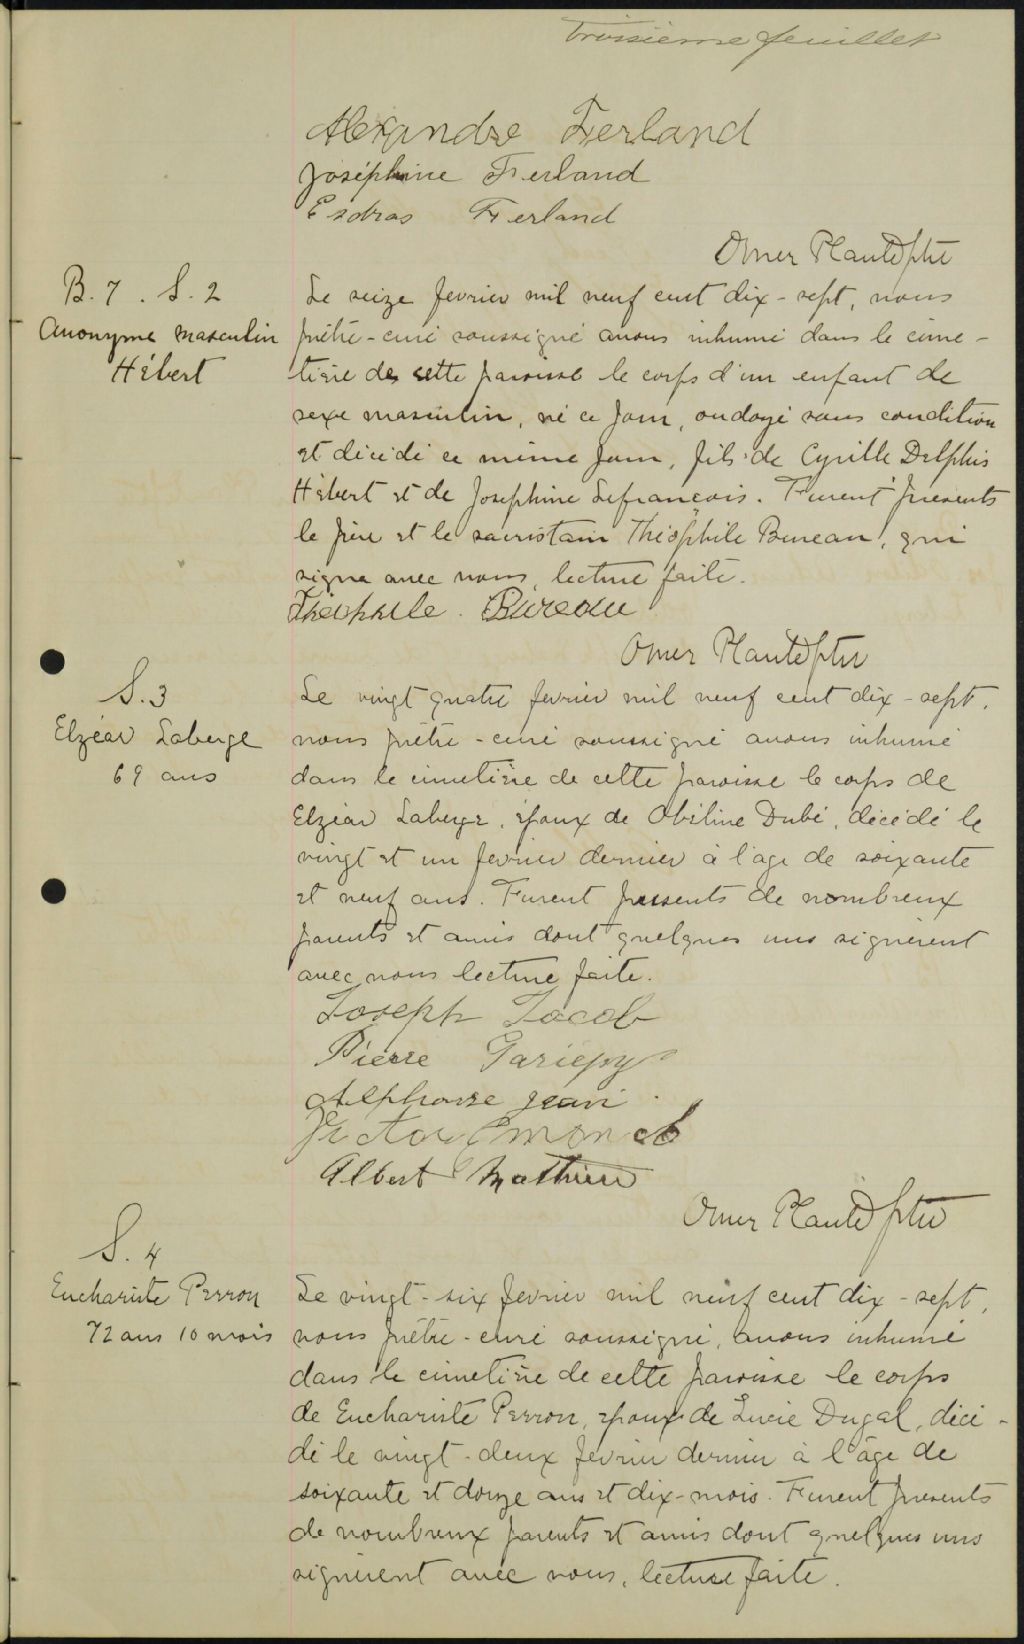 Troisième feuillet
Alexandre Ferland
Joséphine Ferland
Esdras Ferland
Omer Plante ptre
B. 7. S. 2
Anonyme masculin
Hébert
Le seize fevrier mil neuf cent dix-sept, nous
prêtre-curé soussigné avons inhumé dans le cime-
tière de cette paroisse le corps d'un enfant de
sexe masculin, né ce jour, ondoyé sous condition
et décédé ce même jour, fils de Cyrille Delphis
Hébert et de Josephine Lefrancois. Furent présents
le père et le sacristain Théophile Bureau, qui
signe avec nous, lecture faite.
Theophile Bureau
Omer Plante ptre
S. 3
Elzéar Laberge
69 ans
Le vingt quatre fevrier mil neuf cent dix-sept,
nous prêtre-curé soussigné avons inhumé
dans le cimetière de cette paroisse le corps de
Elzéar Laberge, époux de Obéline Dubé, décédé le
vingt et un fevrier dernier à l'age de soixante
et neuf ans. Furent presents de nombreux
parents et amis dont quelques uns signèrent
avec nous lecture faite.
Joseph Jacob
Pierre Gariepy
Alphonse Jean
Victor Emond
Albert Mathieu
Omer Plante ptre
S. 4
Euchariste Perron
72 ans 10 mois
Le vingt-six fevrier mil neuf cent dix-sept,
nous prêtre-curé soussigné, avons inhumé
dans le cimetière de cette paroisse le corps
de Euchariste Perron, époux de Lucie Dugal, décé-
dé le vingt-deux fevrier dernier à l'âge de
soixante et douze ans et dix-mois. Furent presents
de nombreux parents et amis dont quelques uns
signèrent avec nous, lecture faite.